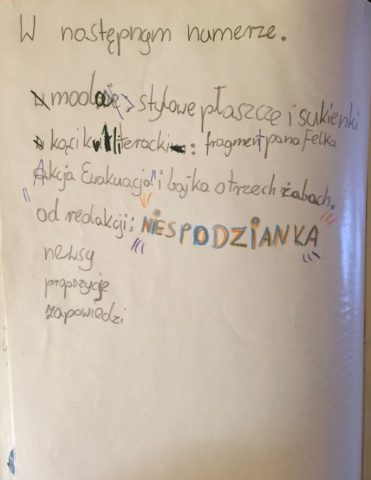 W następnym numerze.
moda, stylowe płaszcze i sukienki
kącik literacki: fragment pana Felka
Akcja Ewakuacja" i bajka o trzech żabach.
"od redakcji: NIESPODZIANKA
newsy
propozycje
zapowiedzi